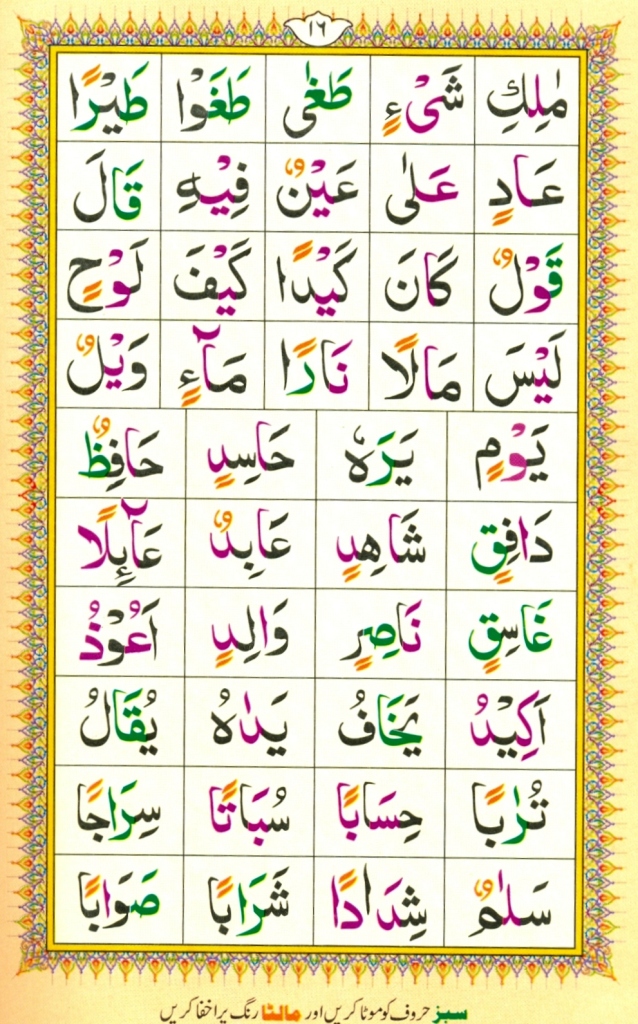 ١٦
مٰلِكِ شَیْءٍ طَغٰی طَغَوْا طَيْرًا
عَادٍ عَلٰی عَيْنٌ فِيْهِ قَالَ
قَوْلٌ كَانَ كَيْدًا كَيْفَ لَوْحٍ
لَيْسَ مَالًا نَارًا مَآءٍ وَيْلٌ
يَوْمٍ يَرَهٗ حَاسِدٍ حَافِظٌ
دَافِقٍ شَاهِدٍ عَابِدٌ عَآئِلًا
غَاسِقٍ نَاصِرٍ وَالِدٍ اَعُوْذُ
اَكِيْدُ يَخَافُ يَدٰهُ يُقَالُ
تُرٰبًا حِسَابًا سُبَاتًا سِرَاجًا
سَلٰمٌ شِدَادًا شَرَابًا صَوَابًا
سبز حروف کو موٹا کریں اور مالٹا رنگ پر اخفا کریں